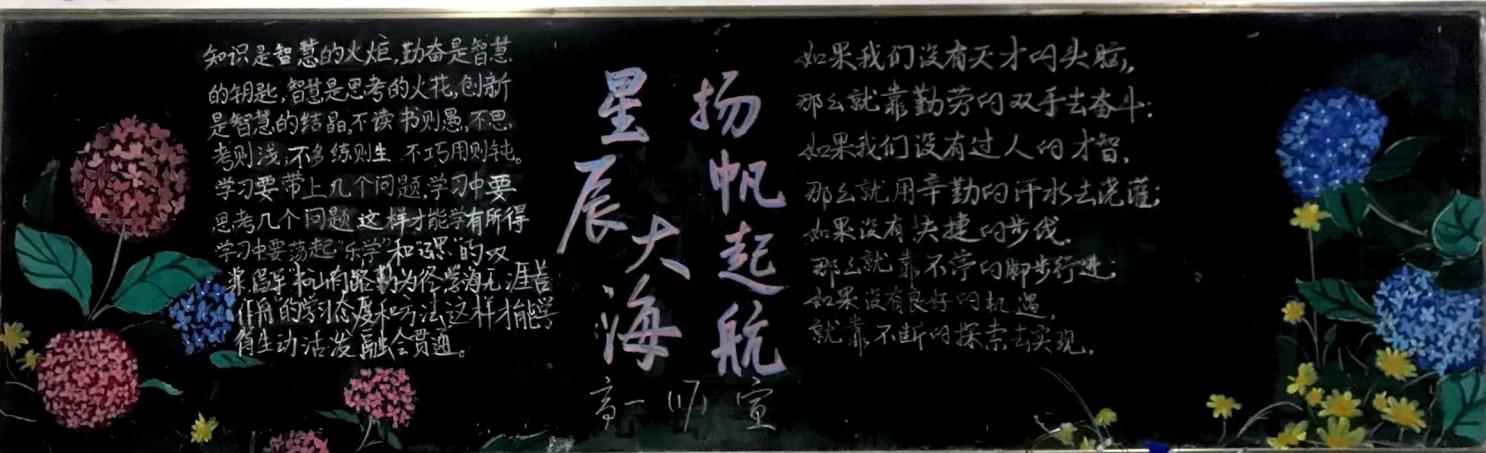 知识是智慧的火炬,勤奋是智慧
的钥匙,智慧是思考的火花,创新
是智慧的结晶,不读书则愚,不思
考则浅,不多练则生 不巧用则钝。
学习要带上几个问题,学习中要
思考几个问题 这样才能学有所得
学习中要荡起"乐学"和"深思"的双
桨 倡导 山有路勤为径,学海无涯苦
作舟"的学习态度和方法,这样才能学
得生动活泼,融会贯通。
扬帆起航
星辰大海
高一 宣
如果我们没有天才的头脑,
那么就靠勤劳的双手去奋斗;
如果我们没有过人的才智,
那么就用辛勤的汗水去浇灌;
如果没有快捷的步伐,
那么就靠不停的脚步行进;
如果没有良好的机遇,
就靠不断的探索去实现.